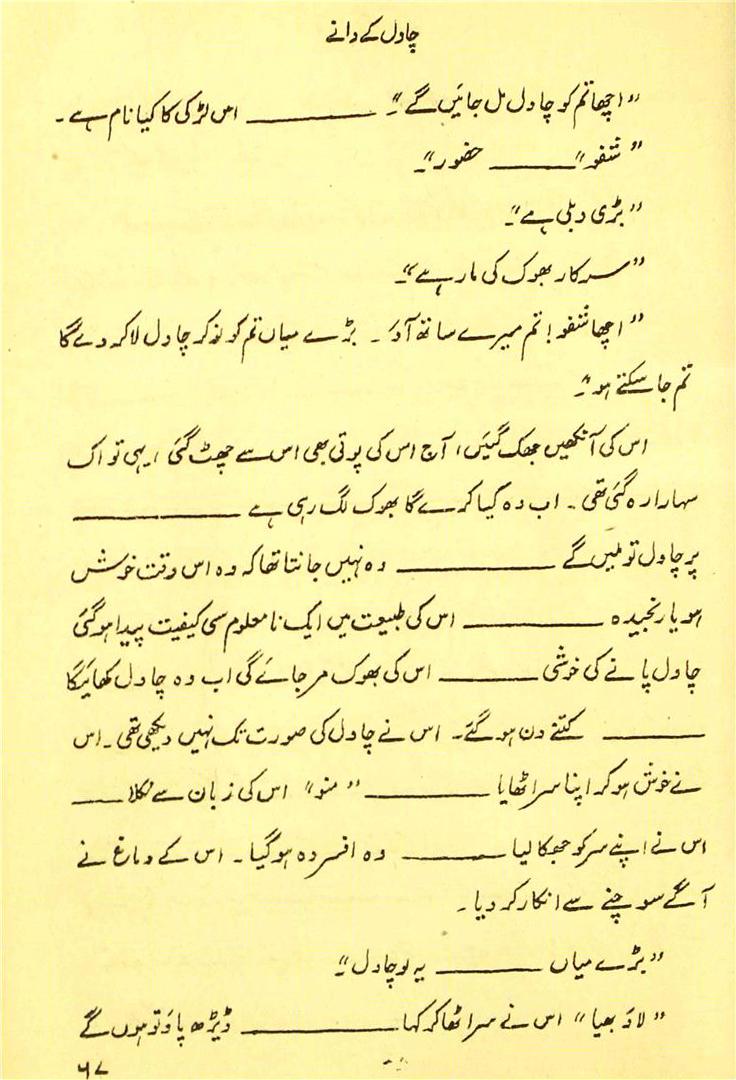 چاول کے دانے
”اچھا تم کو چاول مل جائیں گے“۔ ———— اس لڑکی کا کیا نام ہے۔
”شفو“ ———— حضور“۔
”بڑی دبلی ہے“۔
”سرکار بھوک کی مار ہے“۔
”اچھا شفو! تم میرے ساتھ آؤ۔ بڑے میاں تم کو نوکر چاول لا کر دے گا
تم جا سکتے ہو“۔
اس کی آنکھیں جھک گئیں، آج اس کی پوتی بھی اس سے چھٹ گئی، یہی تو اک
سہارا رہ گئی تھی۔ اب وہ کیا کرے گا بھوک لگ رہی ہے ————
پر چاول تو ملیں گے ———— وہ نہیں جانتا تھا کہ وہ اس وقت خوش
ہو یا رنجیدہ ———— اس کی طبیعت میں ایک نامعلوم سی کیفیت پیدا ہو گئی
چاول پانے کی خوشی ———— اس کی بھوک مر جائے گی اب وہ چاول کھائیگا
———— کتنے دن ہو گئے۔ اس نے چاول کی صورت تک نہیں دیکھی تھی۔ اس
نے خوش ہو کر اپنا سر اٹھایا ———— ”منو“ اس کی زبان سے نکلا ——
اس نے اپنے سر کو جھکا لیا ———— وہ افسردہ ہو گیا۔ اس کے دماغ نے
آگے سوچنے سے انکار کر دیا۔
”بڑے میاں ———— یہ لو چاول“۔
”لاؤ بھیا“ اس نے سر اٹھا کر کہا ———— ڈیڑھ پاؤ تو ہوں گے
۶۷